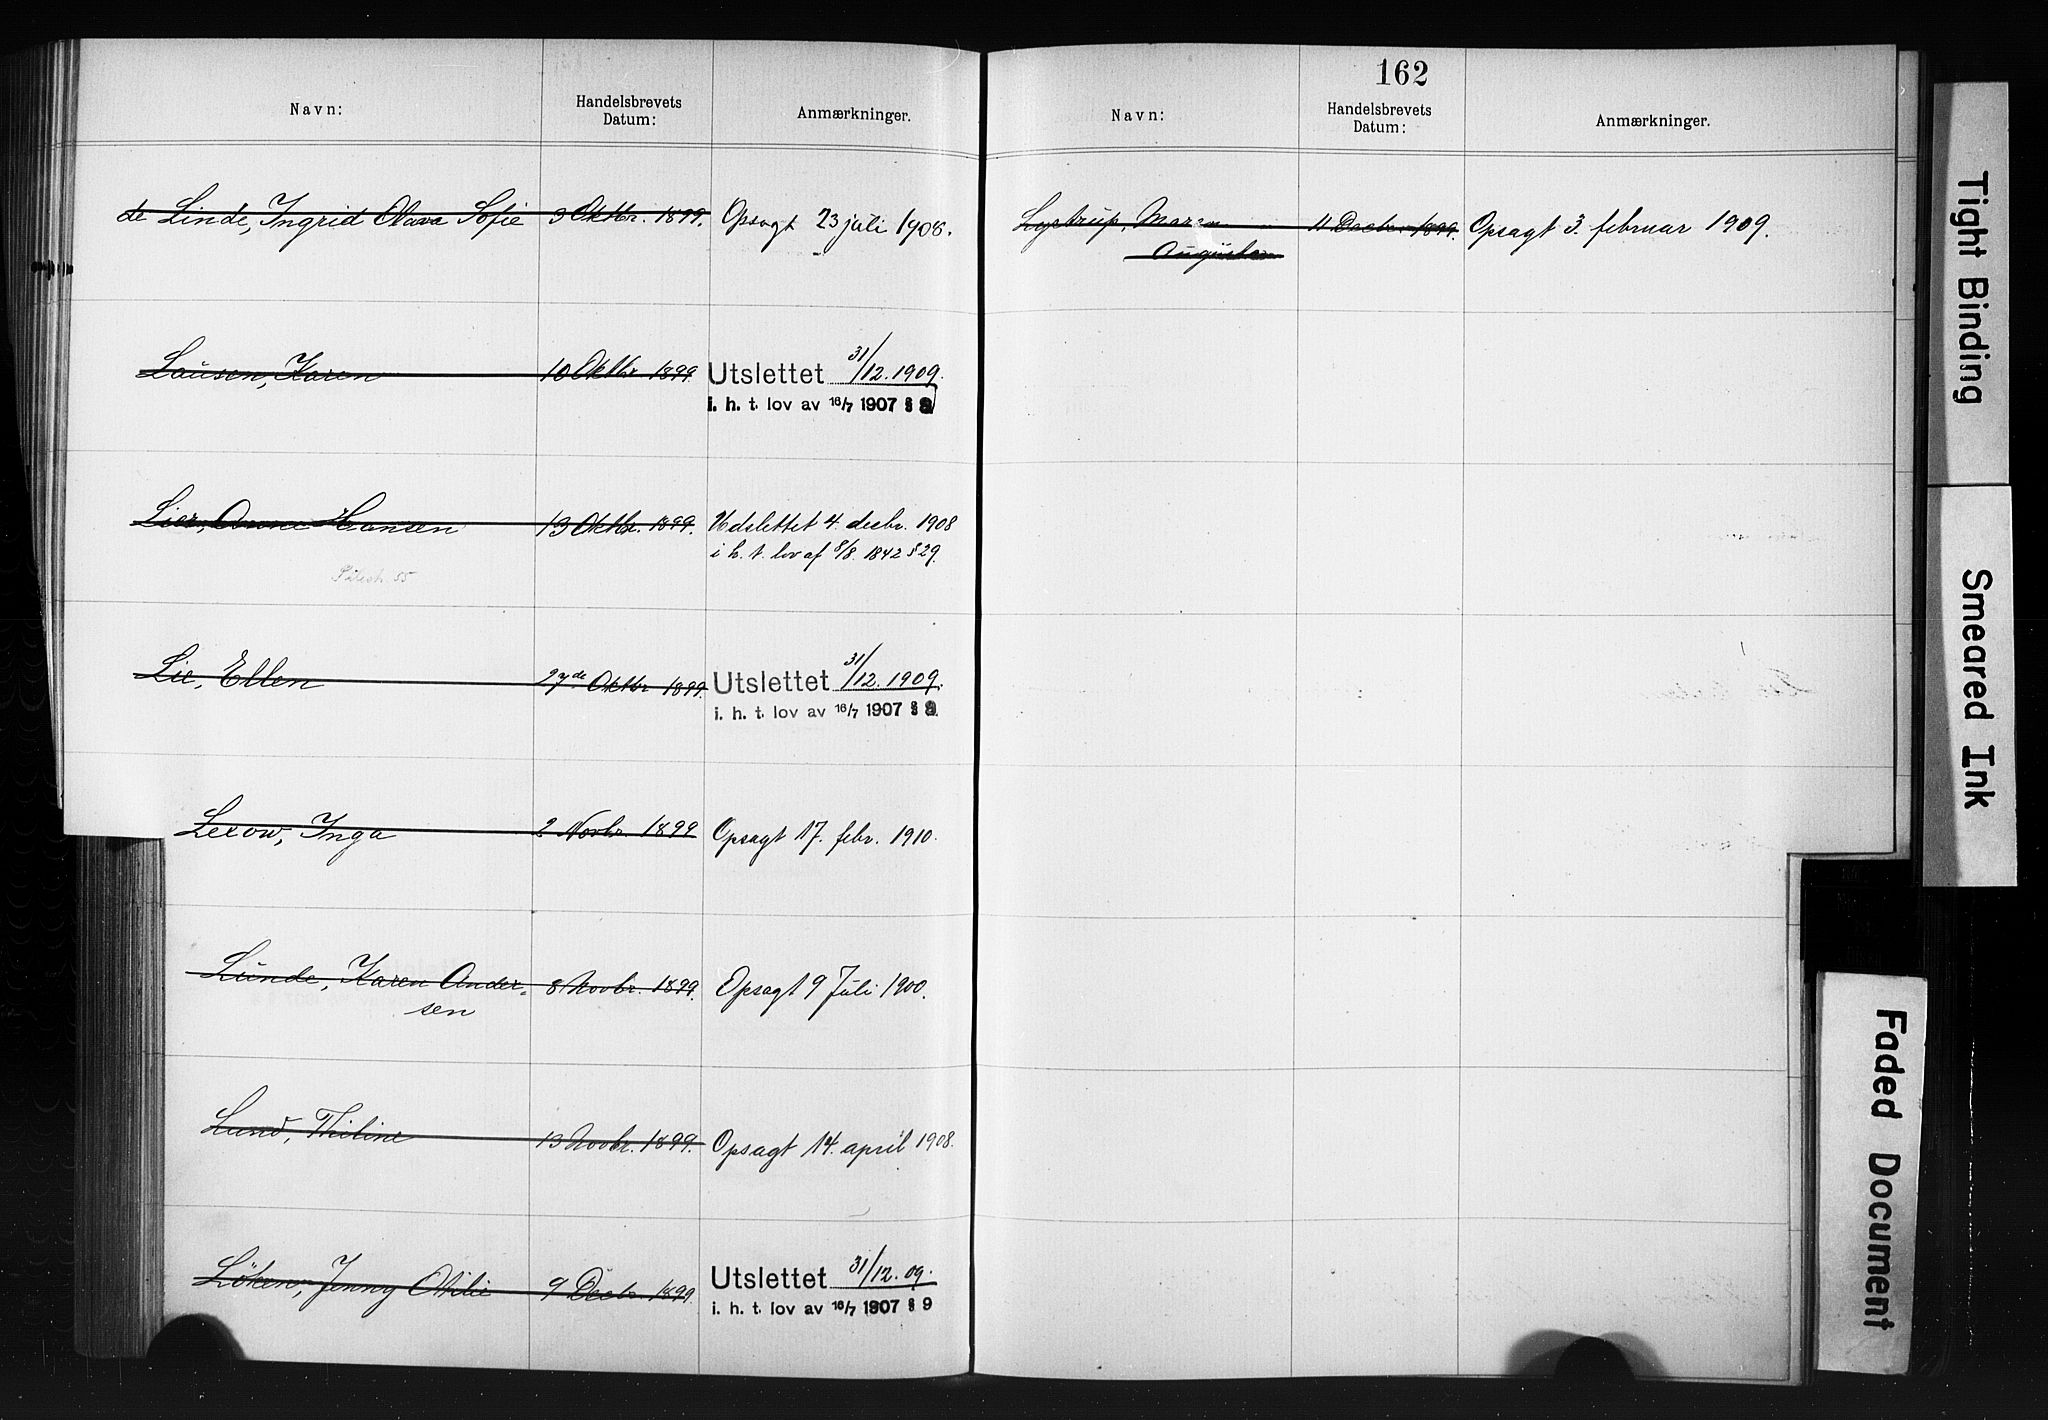 Navn:
Handelsbrevets
Datum:
Anmærkninger.
de Linde, Ingrid Olava Sofie 3 Oktbr. 1899. Opsagt 23 juli 1908.
Lausen, Karen 10 Oktbr 1899 Utslettet 31/12. 1909.
i. h. t. lov av 16/7 1907 § 9
Lier, Anne Hansen 13 Oktbr. 1899. Udslettet 4. desbr. 1908
i h. t. lov af 8/8. 1842 § 29.
Lie, Ellen 27de Oktbr 1899. Utslettet 31/12. 1909.
i. h. t. lov av 16/7 1907 § 9.
Lexow, Inga 2 Novbr. 1899 Opsagt 17. febr. 1910.
Lunde, Karen Ander-
sen
8 Novbr. 1899. Opsagt 9 Juli 1900.
Lund, Thiline 13 Novbr. 1899. Opsagt 14. april 1908.
Löken, Jenny Otilie 9 Decbr. 1899. Utslettet 31/12. 09.
i. h. t. lov av 16/7 1907 § 9
162
Navn:
Handelsbrevets
Datum:
Anmærkninger.
Lystrup, Maren 11 Decbr. 1899. Opsagt 3. februar 1909.
Tight Binding
Smeared Ink
Faded Document